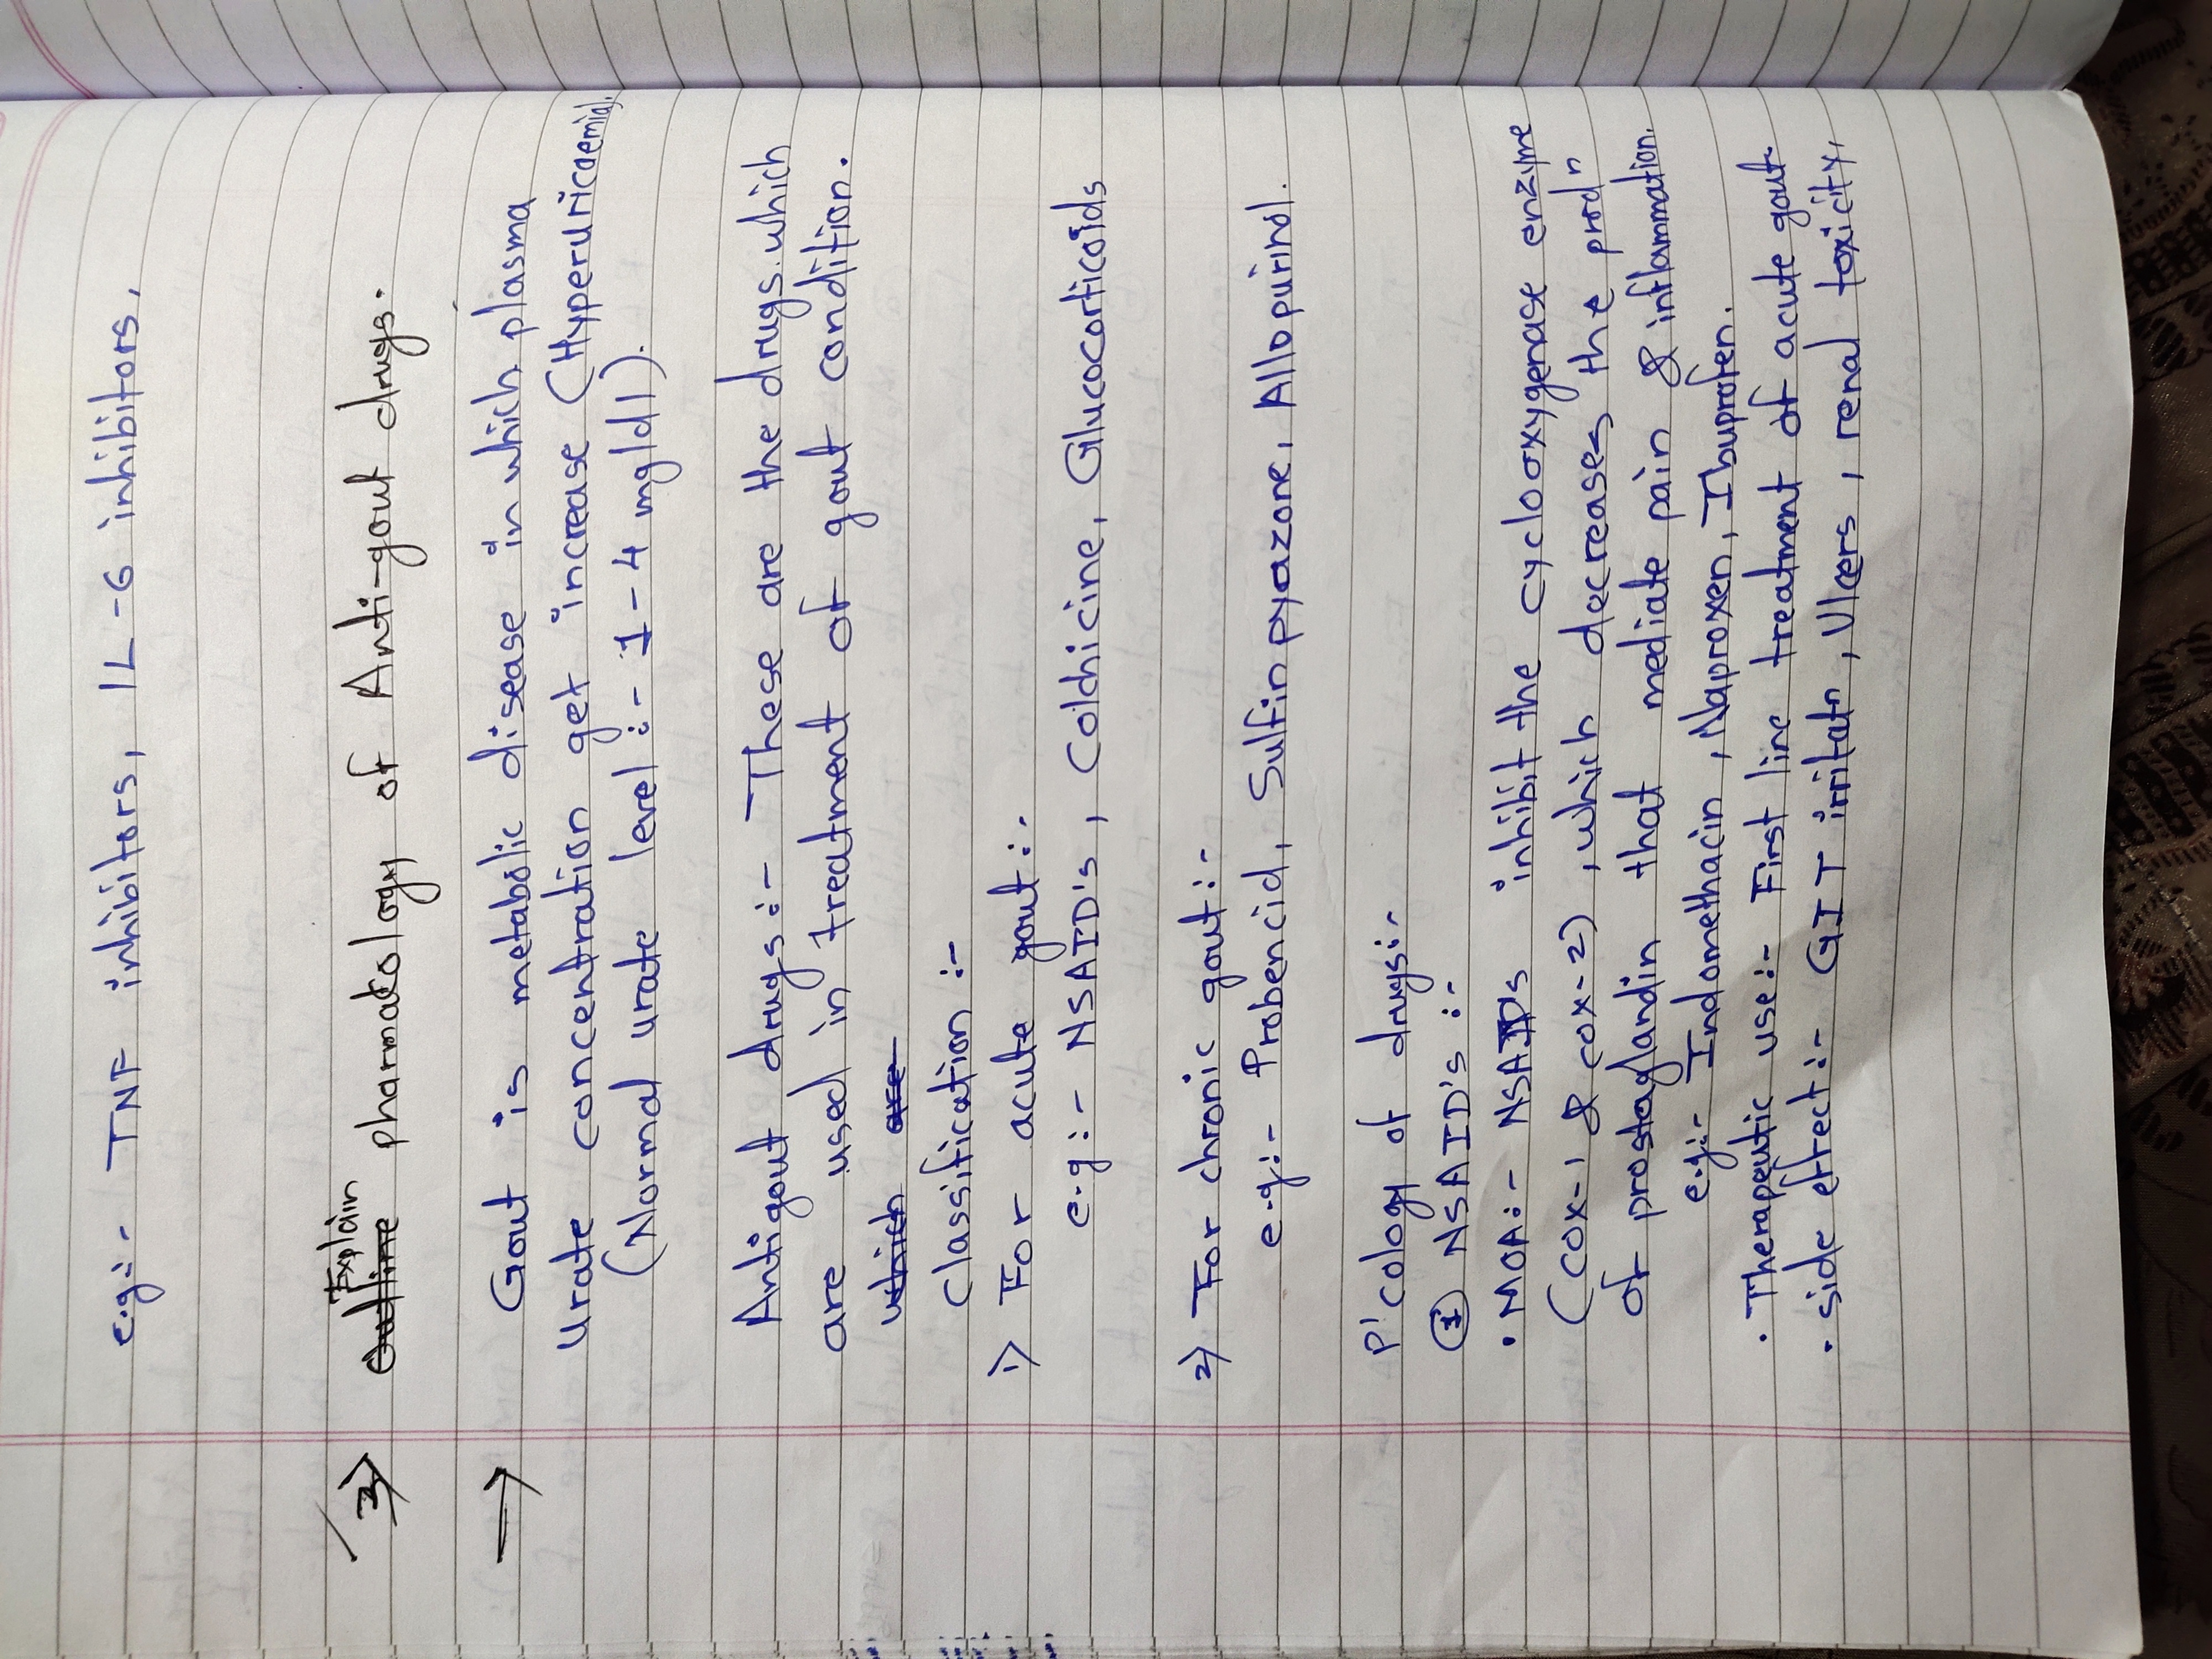 e.g:- TNF inhibitors, IL-6 inhibitors,
Explain
3) Outline pharmacology of Anti-gout drugs.
→ Gout is metabolic disease in which plasma
urate concentration get increase (Hyperuricaemia).
(Normal urate level :- 1-4 mg/dl).
Antigout drugs :- These are the drugs which
are used in treatment of gout condition.
which are
Classification :-
1) For acute gout :-
e.g :- NSAID's, Colchicine, Glucocorticoids
2) For chronic gout :-
e.g:- Probencid, Sulfinpyazone, Allopurinol.
P'cology of drugs:-
① NSAID's :-
• MOA:- NSAID's inhibit the cyclooxygenase enzyme
(COX-1 & COX-2), which decreases the prodⁿ
of prostaglandin that mediate pain & inflammation.
e.g:- Indomethacin, Naproxen, Ibuprofen.
• Therapeutic use:- First line treatment of acute gout
• side effect:- GIT irritatn, Ulcers, renal toxicity,